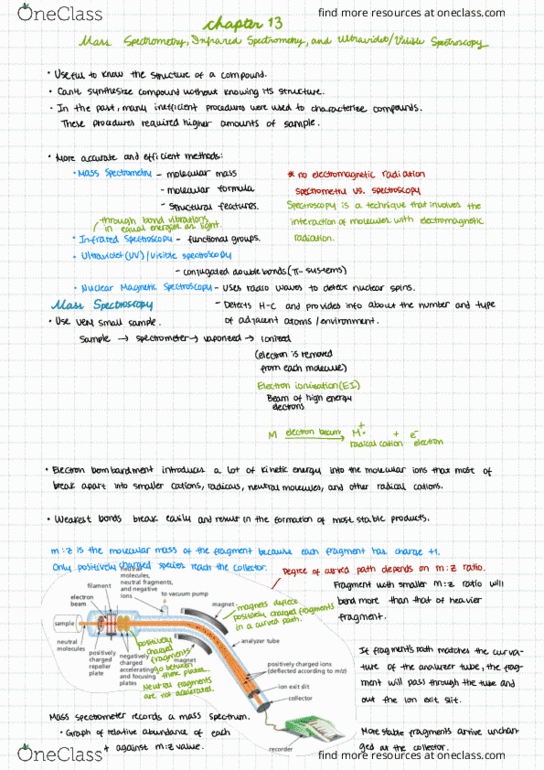 OneClass
find more resources at oneclass.com
chapter 13
Mass Spectrometry, Infrared Spectrometry, and Ultraviolet/Visible Spectroscopy
• Useful to know the structure of a compound.
• Can't synthesize compound without knowing its structure.
• In the past, many inefficient procedures were used to characterize compounds.
These procedures required higher amounts of sample.
• More accurate and efficient methods:
• Mass Spectrometry - molecular mass
- molecular formula
- structural features.
* no electromagnetic radiation
spectrometry vs. spectroscopy
Spectroscopy is a technique that involves the
interaction of molecules with electromagnetic
radiation.
through bond vibrations
in equal energies as light.
• Infrared Spectroscopy - functional groups.
• Ultraviolet (UV)/visible spectroscopy
- conjugated double bonds (π-systems)
• Nuclear Magnetic Spectroscopy - uses radio waves to detect nuclear spins.
- Detects H-C and provides info about the number and type
of adjacent atoms/environment.
Mass Spectroscopy
• Use very small sample.
Sample → spectrometer → vaporized → ionized
(electron is removed
from each molecule)
Electron ionization (EI)
Beam of high energy
electrons
M electron beam → M+• + e-
radical cation electron
• Electron bombardment introduces a lot of kinetic energy into the molecular ions that most of
break apart into smaller cations, radicals, neutral molecules, and other radical cations.
• Weakest bonds break easily and result in the formation of most stable products.
m:z is the molecular mass of the fragment because each fragment has charge +1.
Only positively charged species reach the collector.
Degree of curved path depends on m:z ratio.
Fragment with smaller m:z ratio will
bend more than that of heavier
fragment.
neutral
molecules,
neutral fragments,
and negative
ions
to vacuum pump
filament
electron
beam
sample
neutral
molecules
positively
charged
repeller
plate
negatively
charged
accelerating
and focusing
plates
magnet
magnet
magnets deflect
positively charged fragments
in a curved path.
positively
charged
fragments
go between
these plates.
Neutral fragments
are not accelerated.
analyzer tube
positively charged ions
(deflected according to m/z)
ion exit slit
collector
recorder
If fragment's path matches the curva-
ture of the analyzer tube, the frag-
ment will pass through the tube and
out the ion exit slit.
Mass spectrometer records a mass spectrum.
• Graph of relative abundance of each
+ against m:z value.
More stable fragments arrive unchar-
ged at the collector.
OneClass
find more resources at oneclass.com